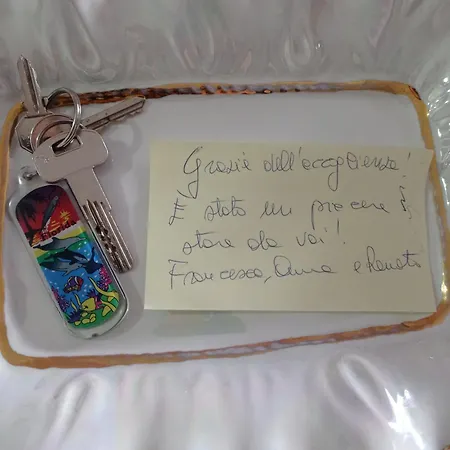 Grazie dell'accoglienza!
È stato un piacere
stare da voi!
Francesca, Anna e Renato